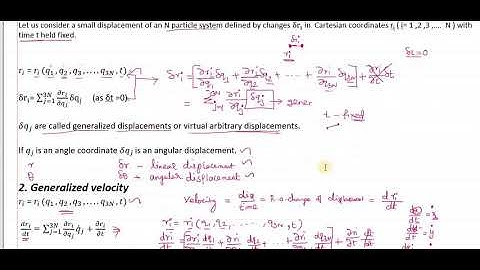 Let us consider a small displacement of an N particle system defined by changes δrᵢ in. Cartesian coordinates rᵢ ( i= 1 ,2 ,3 ,.... N ) with
time t held fixed.
δrᵢ
rᵢ
δt=0
rᵢ = rᵢ (q₁, q₂, q₃, ....., q₃N, t)
δrᵢ = ∂rᵢ/∂q₁ δq₁ + ∂rᵢ/∂q₂ δq₂ + ··· + ∂rᵢ/∂q₃N δq₃N + ∂rᵢ/∂t δt
δrᵢ= ∑³ᴺⱼ₌₁ ∂rᵢ/∂qⱼ δqⱼ (as δt =0)
= ∑³ᴺⱼ₌₁ ∂rᵢ/∂qⱼ δqⱼ → gener
t - fixed
δqⱼ are called generalized displacements or virtual arbitrary displacements.
If qⱼ is an angle coordinate δqⱼ is an angular displacement.
r δr - linear displacement
θ δθ - angular displacement
2. Generalized velocity
rᵢ = rᵢ (q₁, q₂, q₃, ....., q₃N, t)
velocity = dis/time = r.o.change of displacement = drᵢ/dt
rᵢ = rᵢ (q₁, q₂, ·····, q₃N, t)
drᵢ/dt = ∑³ᴺⱼ₌₁ ∂rᵢ/∂qⱼ q̇ⱼ + ∂rᵢ/∂t
drᵢ/dt = ∂rᵢ/∂q₁ dq₁/dt + ∂rᵢ/∂q₂ dq₂/dt + ··· + ∂rᵢ/∂t dt/dt